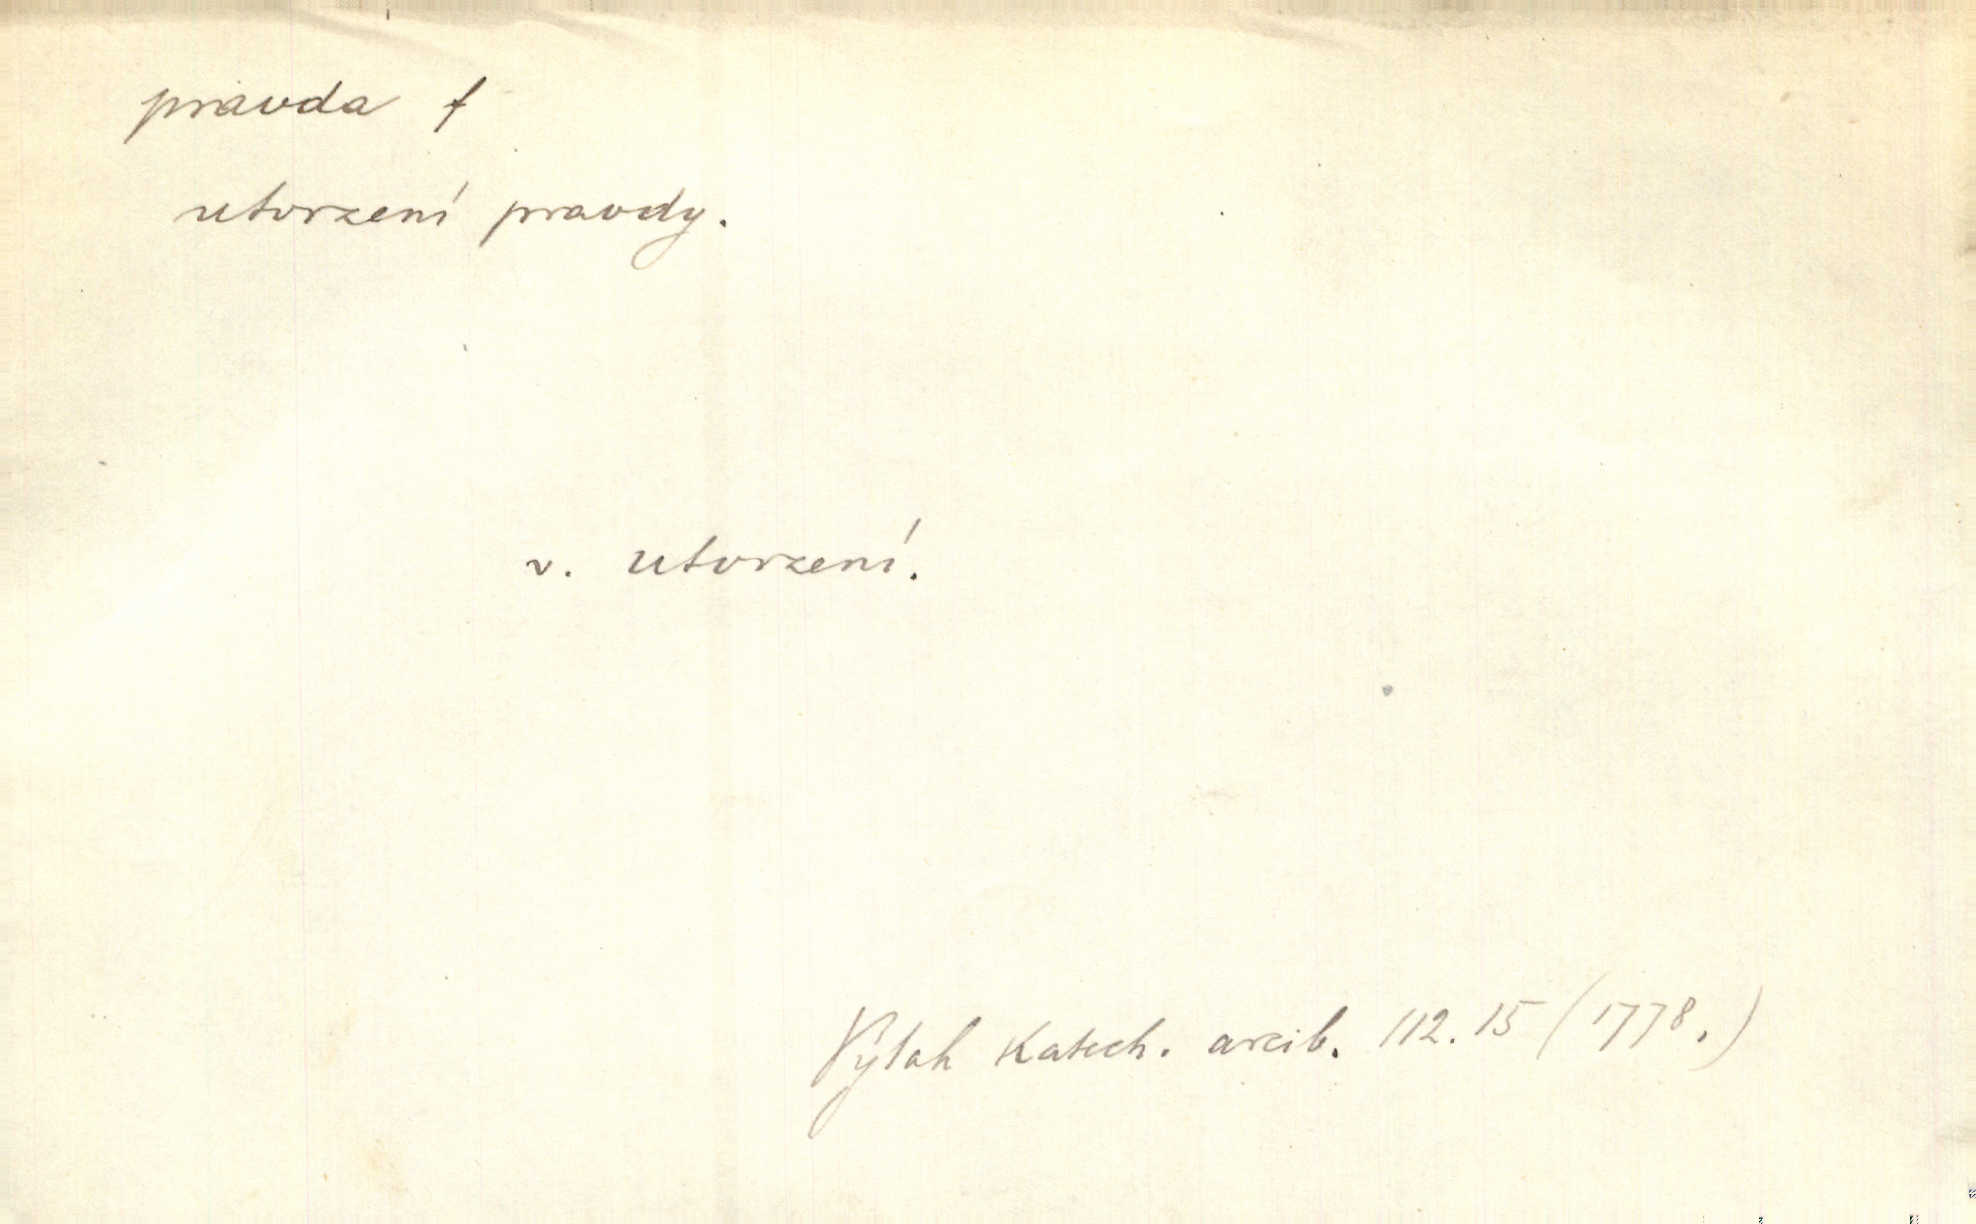 pravda f
utvrzení pravdy.
v. utvrzení.
Výtah katech. arcib. 112. 15 (1778.)